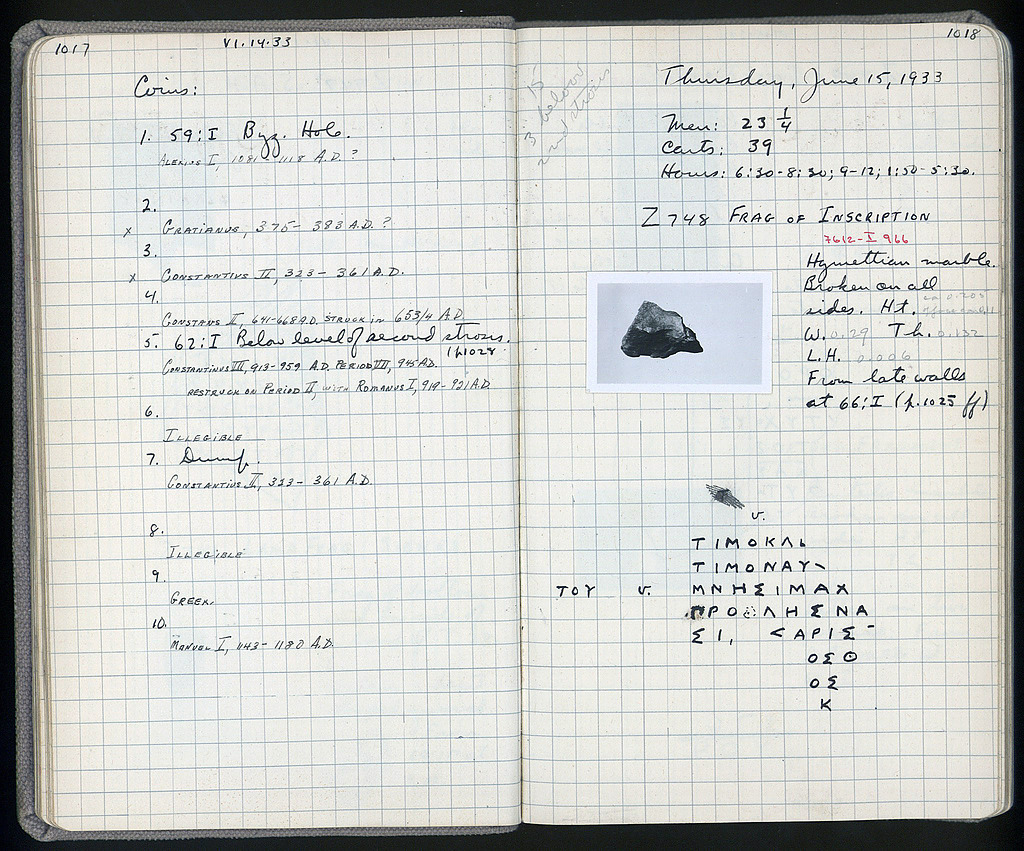 1017
VI.14.33
Coins:
1. 59:I Byz. Hole.
ALEXIUS I, 1081-1118 A.D.?
2.
x GRATIANUS, 375-383 A.D.?
3.
x CONSTANTIUS II, 323-361 A.D.
4.
CONSTANS II, 641-668 A.D. STRUCK in 653/4 A.D.
5. 62:I Below level of second strosis.
(p.1028
CONSTANTINUS VII, 913-959 A.D. PERIOD VII, 945 A.D.
RESTRUCK ON PERIOD II, WITH ROMANUS I, 919-921 A.D
6.
ILLEGIBLE
7. Dump.
CONSTANTIUS II, 323-361 A.D.
8.
ILLEGIBLE
9.
GREEK.
10.
MANUEL I, 1143-1180 A.D.
1018
15
3 below
2nd strosis
Thursday, June 15, 1933
Men: 23 1/4
Carts: 39
Hours: 6:30-8:30; 9-12; 1:50-5:30.
Z 748 FRAG OF INSCRIPTION
7612-I 966
Hymettian marble.
Broken on all
sides. Ht.
W. 0.29 Th. 0.132
L.H. 0.006
From late walls
at 66:I (p.1025 ff)
v.
ΤΙΜΟΚΛ
ΤΙΜΟΝΑΥ
ΤΟΥ v. ΜΝΗΣΙΜΑΧ
ΠΡΟ ΛΗΣΝΑ
ΣΙ, <ΑΡΙΣ
ΟΣΘ
ΟΣ
Κ